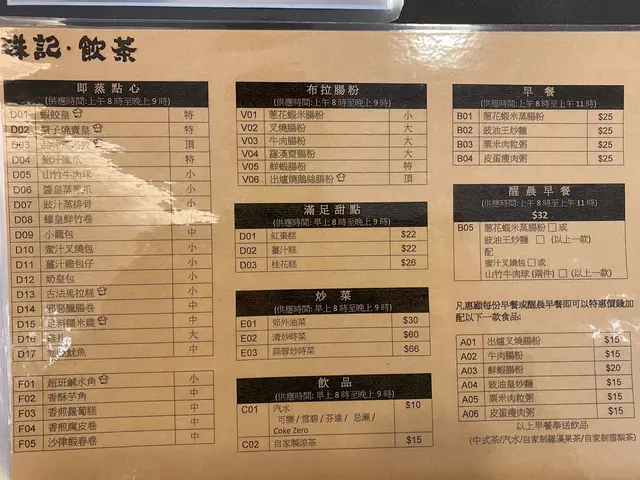 珠記·飲茶
即蒸點心
(供應時間:上午8時至晚上9時)
D01 蝦餃皇 特
D02 燒賣皇 特
D03 頂
D04 鮑汁鳳爪 特
D05 山竹牛肉球 小
D06 醬皇蒸鳳爪 小
D07 豉汁蒸排骨 小
D08 蠔皇鮮竹卷 小
D09 小籠包 中
D10 蜜汁叉燒包 中
D11 薑汁雞包仔 小
D12 奶皇包 小
D13 古法馬拉糕 小
D14 臘腸卷 中
D15 糯米雞 中
D16 大
D17 魷魚 中
F01 超班鹹水角 小
F02 香酥芋角 中
F03 香煎蘿蔔糕 中
F04 香煎腐皮卷 中
F05 沙律蝦春卷 中
布拉腸粉
(供應時間:上午8時至晚上9時)
V01 蔥花蝦米腸粉 小
V02 叉燒腸粉 大
V03 牛肉腸粉 大
V04 羅漢齋腸粉 大
V05 鮮蝦腸粉 特
V06 出爐燒鵝絲腸粉 頂
滿足甜點
(供應時間: 早上8時至晚上9時)
D01 紅棗糕 $22
D02 薑汁糕 $22
D03 桂花糕 $26
炒菜
(供應時間: 早上8時至晚上9時)
E01 郊外油菜 $30
E02 清炒時菜 $60
E03 蒜蓉炒時菜 $66
飲品
(供應時間: 早上8時至晚上9時)
C01 汽水 $10
可樂 / 雪碧 / 芬達 / 忌廉 /
Coke Zero
C02 自家製涼茶 $15
早餐
(供應時間: 上午8時至上午11時)
B01 蔥花蝦米蒸腸粉 $25
B02 豉油王炒麵 $25
B03 粟米肉粒粥 $25
B04 皮蛋瘦肉粥 $25
醒晨早餐
(供應時間: 上午8時至上午11時)
$32
B05 蔥花蝦米蒸腸粉 □ 或
豉油王炒麵 □ (以上一款)
配
蜜汁叉燒包 □ 或
山竹牛肉球 (兩件) □
凡惠顧每份早餐或醒晨早餐即可以特惠價錢加
配以下一款食品:
A01 出爐叉燒腸粉 $15
A02 牛肉腸粉 $15
A03 鮮蝦腸粉 $20
A04 豉油皇炒麵 $15
A05 粟米肉粒粥 $15
A06 皮蛋瘦肉粥 $15
以上早餐奉送飲品
(中式茶/汽水/自家制羅漢果茶/自家制雪梨茶)